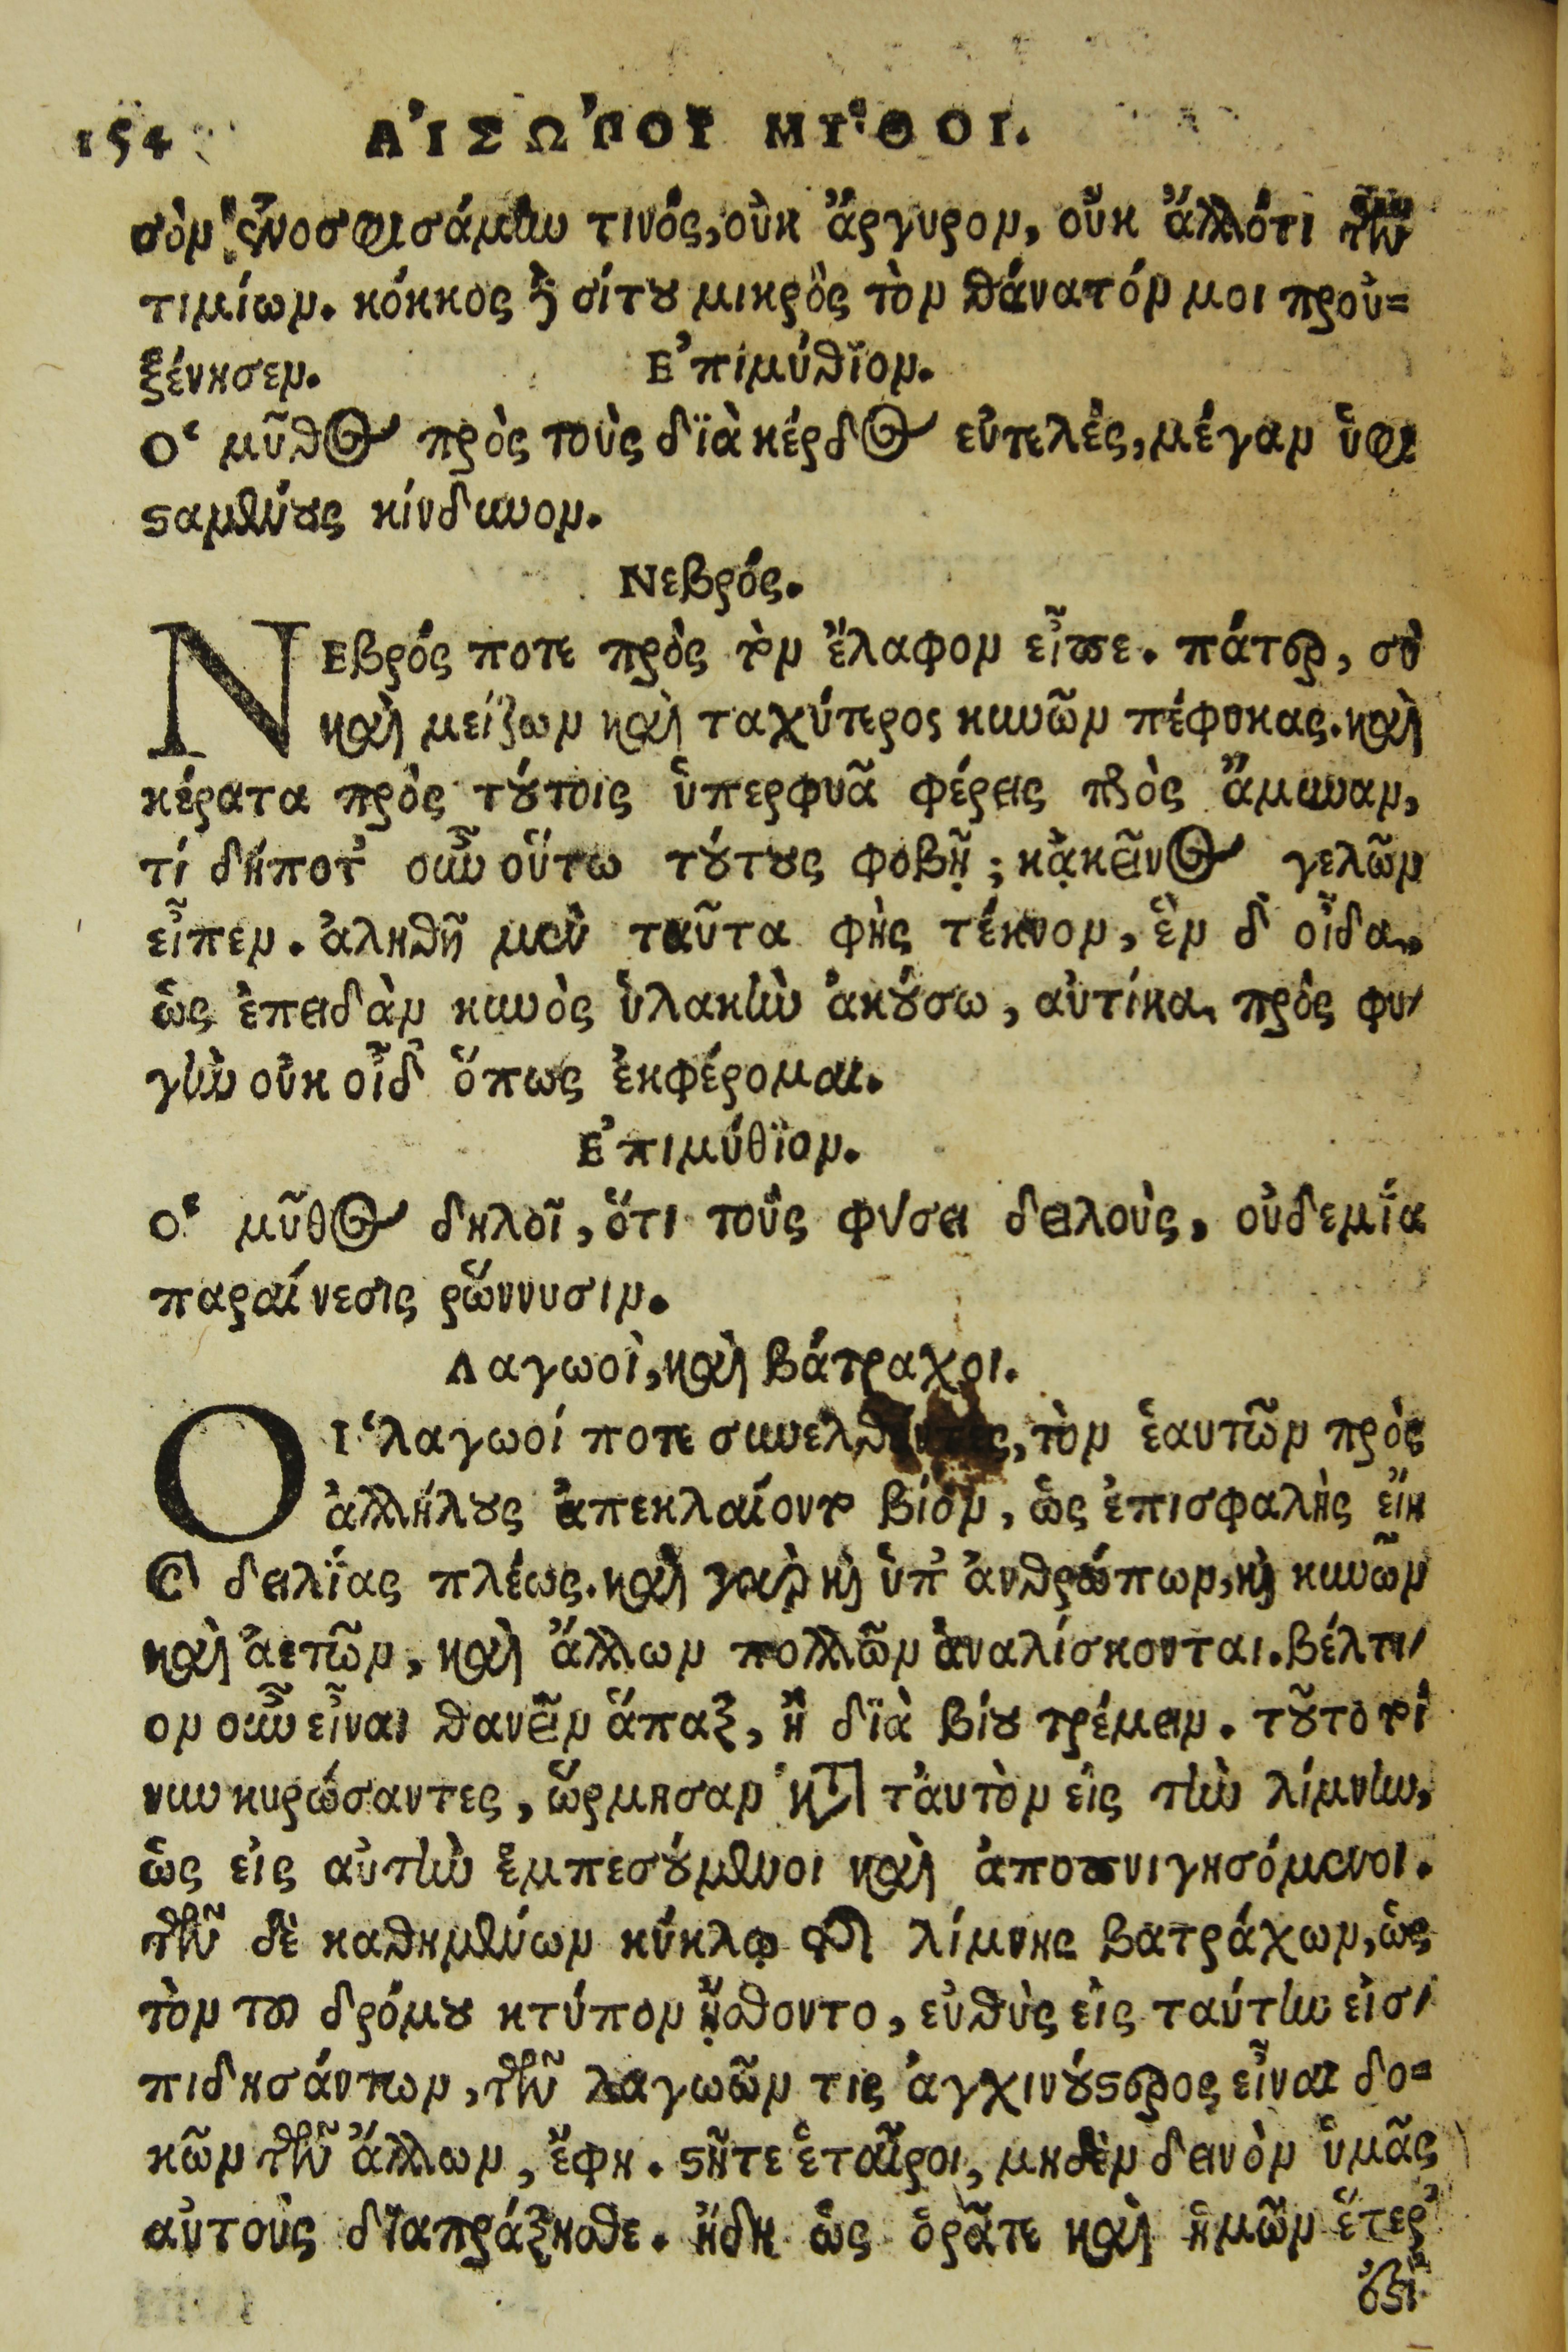 154 ΑἸΣΩ´ΠΟΥ ΜΥ͂ΘΟΙ.
σὸν ἐνοσφισάμην τινός, οὐκ ἄργυρον, οὐκ ἄλλό τι τῶν
τιμίων. κόκκος δὲ σίτου μικρὸς τὸν θάνατόν μοι πρου=
ξένησεν. Ἐπιμύθϊον.
Ὁ μῦθος πρὸς τοὺς δϊὰ κέρδος εὐτελὲς, μέγαν ὑφι
σταμένους κίνδυνον.
Νεβρός.
ΝΕβρός ποτε πρὸς τὸν ἔλαφον εἶπε. πάτερ, σὺ
καὶ μείζων καὶ ταχύτερος κυνῶν πέφυκας. καὶ
κέρατα πρὸς τούτοις ὑπερφυᾶ φέρεις πρὸς ἄμυναν,
τί δήποτ' οὖν οὕτω τούτους φοβῇ; κᾀκεῖνος γελῶν
εἶπεν. ἀληθῆ μὲν ταῦτα φὴς τέκνον, ἓν δ' οἶδα,
ὡς ἐπειδὰν κυνὸς ὑλακὴν ἀκούσω, αὐτίκα πρὸς φυ/
γὴν οὐκ οἶδ' ὅπως ἐκφέρομαι.
Ἐπιμύθϊον.
Ὁ μῦθος δηλοῖ, ὅτι τοὺς φύσει δειλοὺς, οὐδεμία
παραίνεσις ῥώννυσιν.
Λαγωοὶ, καὶ βάτραχοι.
ΟἹ λαγωοί ποτε συνελθόντες, τὸν ἑαυτῶν πρὸς
ἀλλήλους ἀπεκλαίοντο βίον, ὡς ἐπισφαλὴς εἴη
καὶ δειλΐας πλέως. καὶ γὰρ καὶ ὑπ' ἀνθρώπων, καὶ κυνῶν
καὶ ἀετῶν, καὶ ἄλλων πολλῶν ἀναλίσκονται. βέλτι/
ον οὖν εἶναι θανεῖν ἅπαξ, ἢ δϊὰ βίου τρέμειν. τοῦτο τοί
νυν κυρώσαντες, ὥρμησαν κατὰ ταὐτὸν εἰς τὴν λίμνην,
ὡς εἰς αὐτὴν ἐμπεσούμενοι καὶ ἀποπνιγησόμενοι.
τῶν δὲ καθημένων κύκλῳ τῆς λίμνης βατράχων, ὡς
τὸν τοῦ δρόμου κτύπον ᾔσθοντο, εὐθὺς εἰς ταύτην εἰσ/
πιδησάντων, τῶν λαγωῶν τις ἀγχινούστερος εἶναι δο=
κῶν τῶν ἄλλων, ἔφη. στῆτε ἑταῖροι, μηδὲν δεινὸν ὑμᾶς
αὐτοὺς διαπράξησθε. ἤδη ὡς ὁρᾶτε καὶ ἡμῶν ἕτερ'